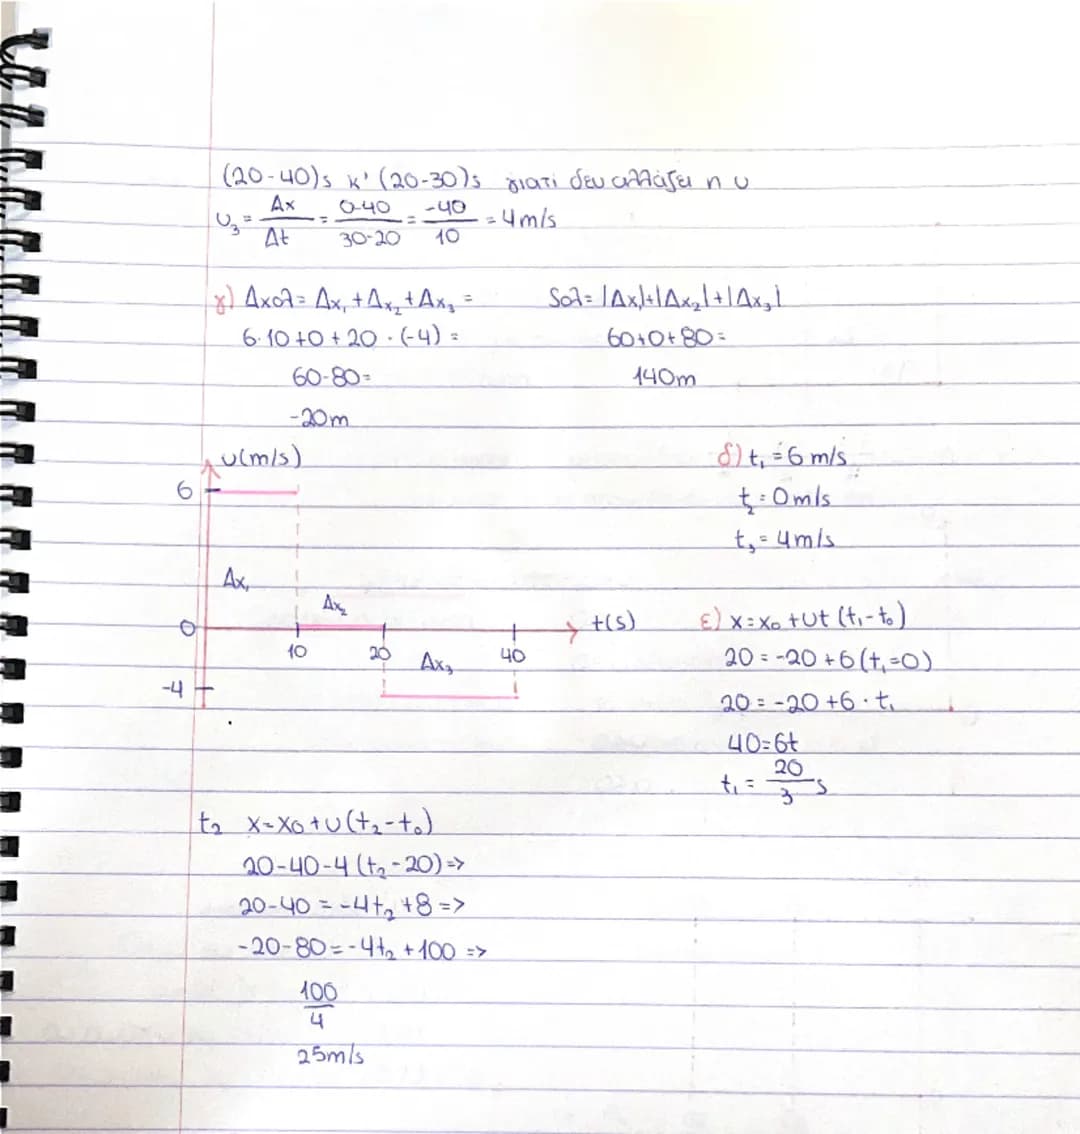 (20-40)s κ' (20-30)s γιατί δεν αλλάζει η υ
υ₃ = Δx/Δt = 0-40/30-20 = -40/10 = 4m/s
γ) Δxολ = Δx₁ + Δx₂ + Δx₃ =
6·10+0+20·(-4) =
60-80=
-20m
Sολ= |Δx₁|+|Δx₂|+|Δx₃|
60+0+80=
140m
υ(m/s)
6
Δx₁
Δx₂
0
t(s)
10
20
40
Δx₃
-4
δ) t₁ = 6 m/s
t₂ = 0m/s
t₃ = 4m/s
ε) x=x₀ +υt (t₁-t₀)
20 = -20 +6 (t₁=0)
20 = -20 +6·t₁
40=6t
t₁ = 20/3 s
t₂ x=x₀+υ(t₂-t₀)
20-40-4(t₂-20)=>
20-40 = -4t₂ +8 =>
-20-80=-4t₂ +100 =>
100/4
25m/s